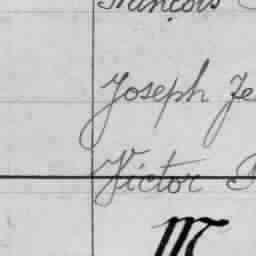 François
Joseph Je
Victor
M